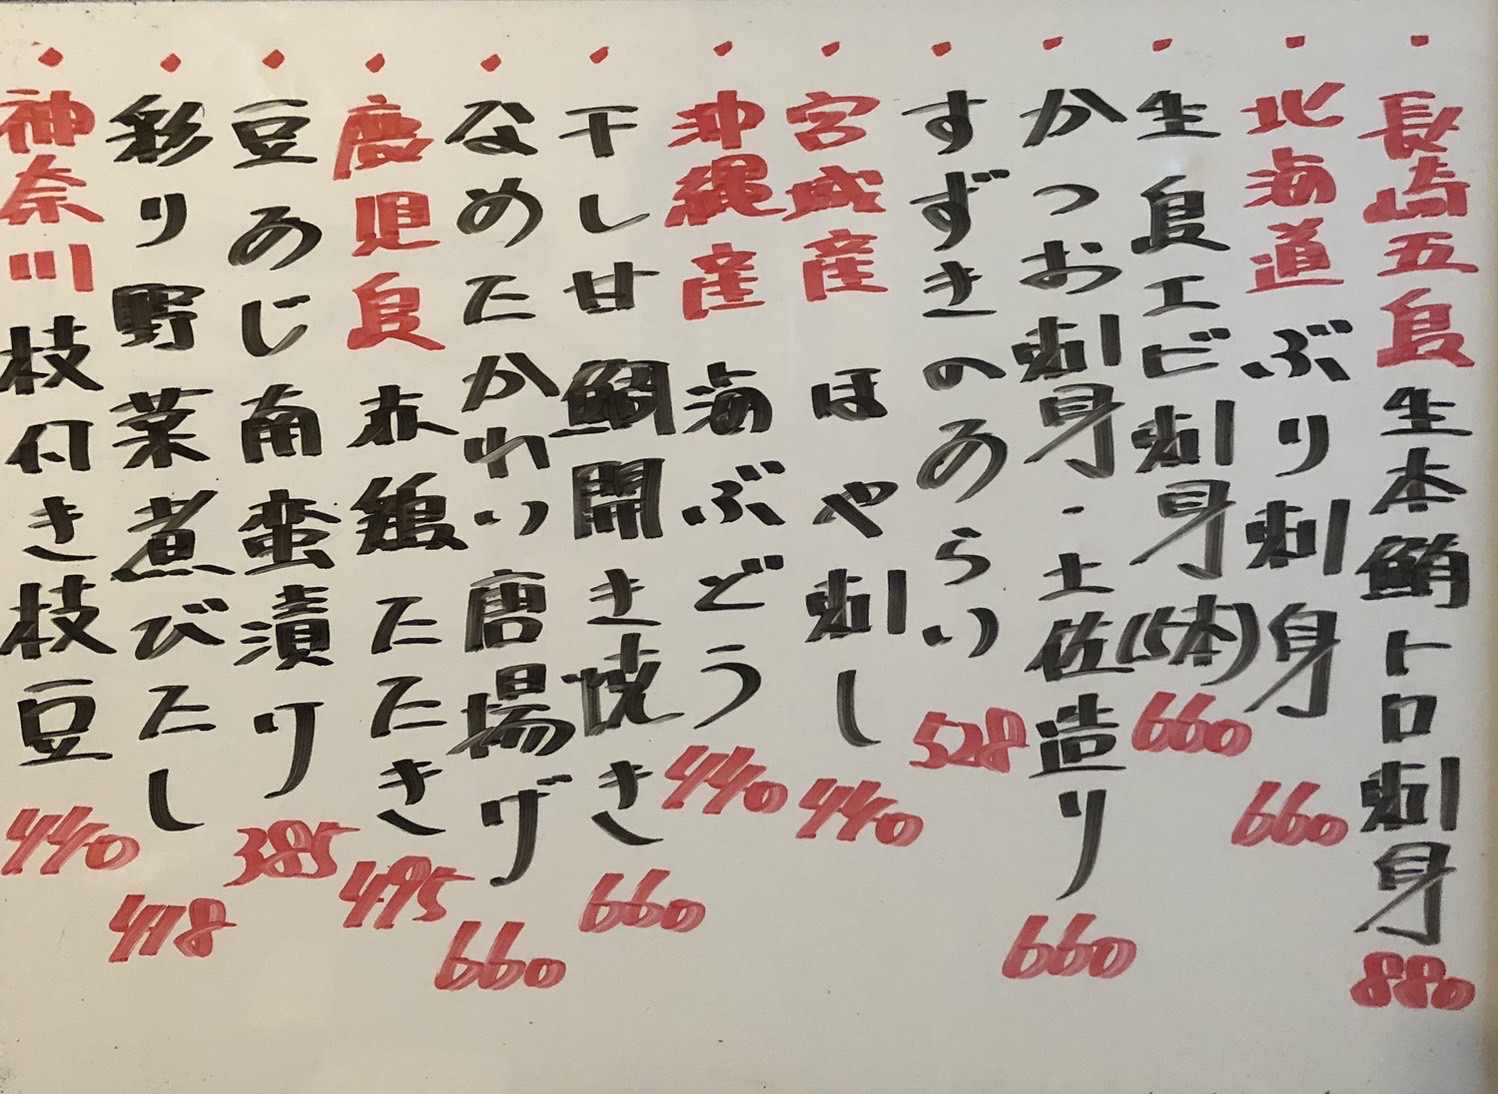 ・長崎五島 生本鮪トロ刺身 880
・北海道 ぶり刺身 660
・生島エビ刺身(5本) 660
・かつお刺身・土佐造り 660
・すずきのあらい 528
・宮城産 ほや刺し 440
・沖縄産 海ぶどう 440
・干し甘鯛開き焼き 660
・なめたかれい唐揚げ 660
・鹿児島 赤鶏たたき 495
・豆あじ南蛮漬り 385
・彩り野菜煮びたし 418
・神奈川 枝付き枝豆 440